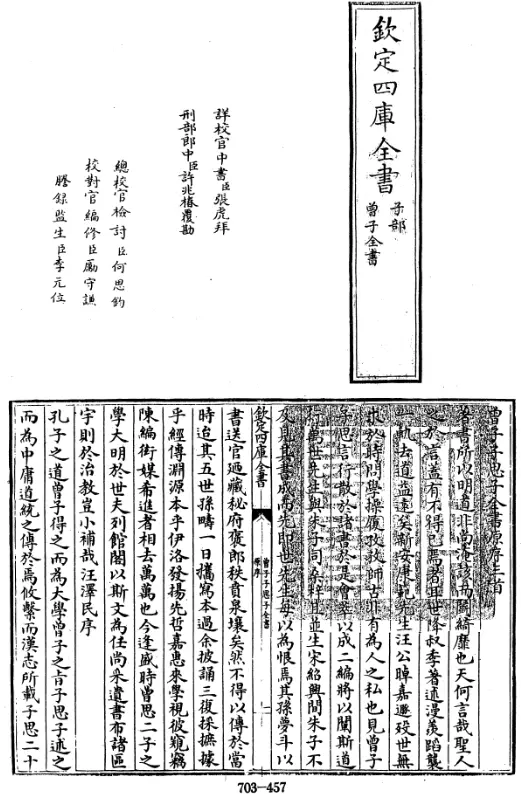 欽定四庫全書
子部
曾子全書
詳校官中書臣張虎拜
刑部郎中臣許兆椿覆勘
總校官檢討臣何思鈞
校對官編修臣勵守謙
謄錄監生臣李元位
曾子子思子全書原序三首
著書所以明道非尚淹該而閎綺靡也天何言哉聖人
之於言蓋有不得已焉者耳世降叔季著述漫羨蹈襲
一軌去道益遠矣新安康範先生汪公晫嘉遯歿世無
求於時問學操履孜孜師古非有為人之私也見曾子
子思言行散於諸書於是會稡以成二編將以闡斯道
行萬世先生與朱子同矣梓且並生宋紹興間朱子不
及見其書成而先即世先生每以為恨焉其孫夢斗以
欽定四庫全書
曾子子思子全書
原序
一
書送官廼藏秘府褒郎秩賁泉壤矣然不得以傳於當
時迨其五世孫疇一日攜寫本過余披誦三復採摭據
乎經傳淵源本乎伊洛發揚先哲嘉惠來學視彼窺竊
陳編衒媒希進者相去萬萬也今逢盛時曾思二子之
學大明於世夫列館閣以斯文為任尚采遺書布諸區
宇則於治教豈小補哉汪澤民序
孔子之道曾子得之而為大學曾子之言子思子述之
而為中庸道統之傳於焉攸繫而漢志所載子思二十
703—457